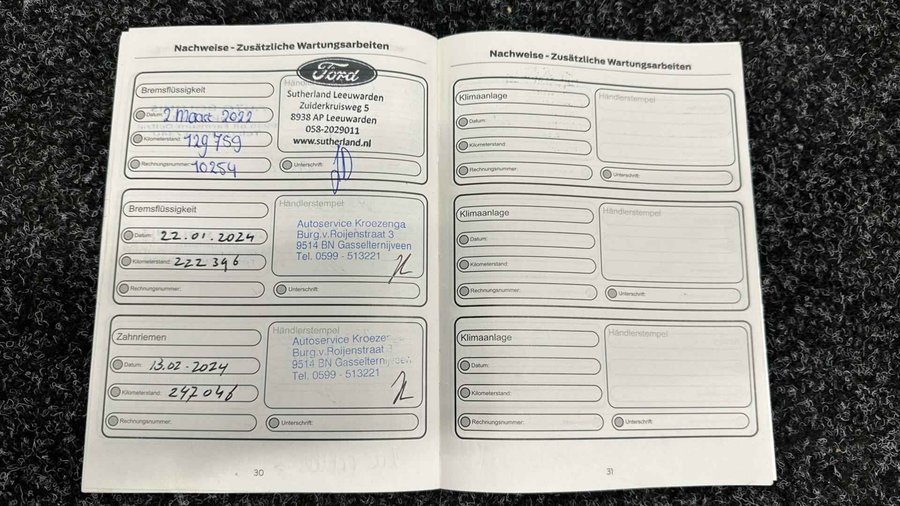 Nachweise - Zusätzliche Wartungsarbeiten
Bremsflüssigkeit
Datum: 2 maart 2022
Kilometerstand: 129759
Rechnungsnummer: 10254
Ford
Sutherland Leeuwarden
Zuiderkruisweg 5
8938 AP Leeuwarden
058-2029011
www.sutherland.nl
Unterschrift:
Bremsflüssigkeit
Datum: 22.01.2024
Kilometerstand: 222 396
Rechnungsnummer:
Händlerstempel
Autoservice Kroezenga
Burg.v.Roijenstraat 3
9514 BN Gasselternijveen
Tel. 0599 - 513221
Unterschrift:
Zahnriemen
Datum: 13.02.2024
Kilometerstand: 247046
Rechnungsnummer:
Händlerstempel
Autoservice Kroezen
Burg.v.Roijenstraat
9514 BN Gasselternijveen
Tel. 0599 - 513221
Unterschrift:
30
Nachweise - Zusätzliche Wartungsarbeiten
Klimaanlage
Datum:
Kilometerstand:
Rechnungsnummer:
Händlerstempel
Unterschrift:
Klimaanlage
Datum:
Kilometerstand:
Rechnungsnummer:
Händlerstempel
Unterschrift:
Klimaanlage
Datum:
Kilometerstand:
Rechnungsnummer:
Händlerstempel
Unterschrift:
31